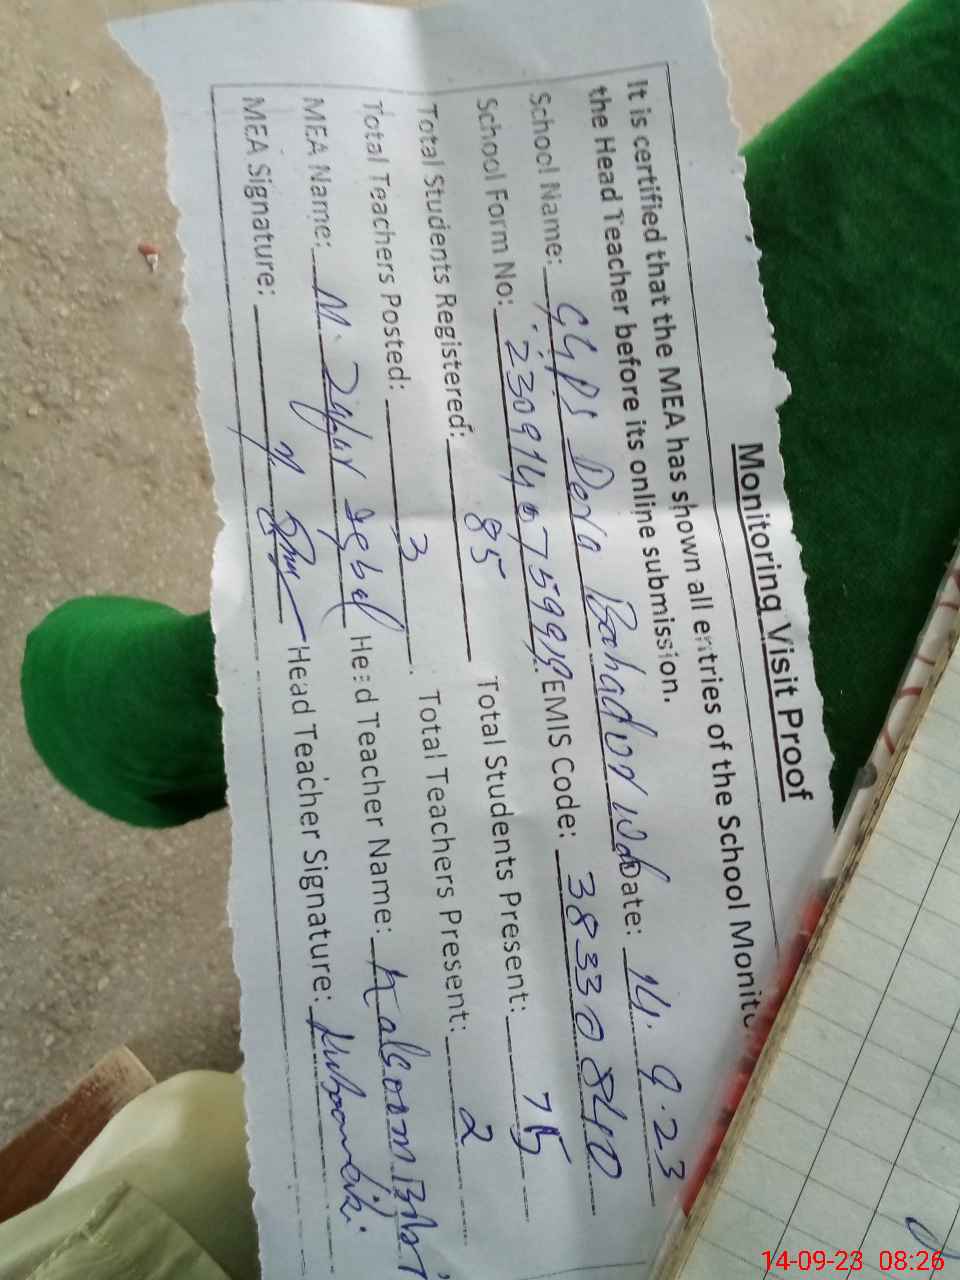 Monitoring Visit Proof
It is certified that the MEA has shown all entries of the School Monito
the Head Teacher before its online submission.
School Name: GGPS Dera Bahadur Wala Date: 14. 9.23
School Form No: EMIS Code: 38330840
Total Students Registered: 85 Total Students Present: 75
Total Teachers Posted: 3 Total Teachers Present: 2
MEA Name: M. Zafar Iqbal Head Teacher Name: Kalsoom Bibi
MEA Signature: Head Teacher Signature:
14-09-23 08:26